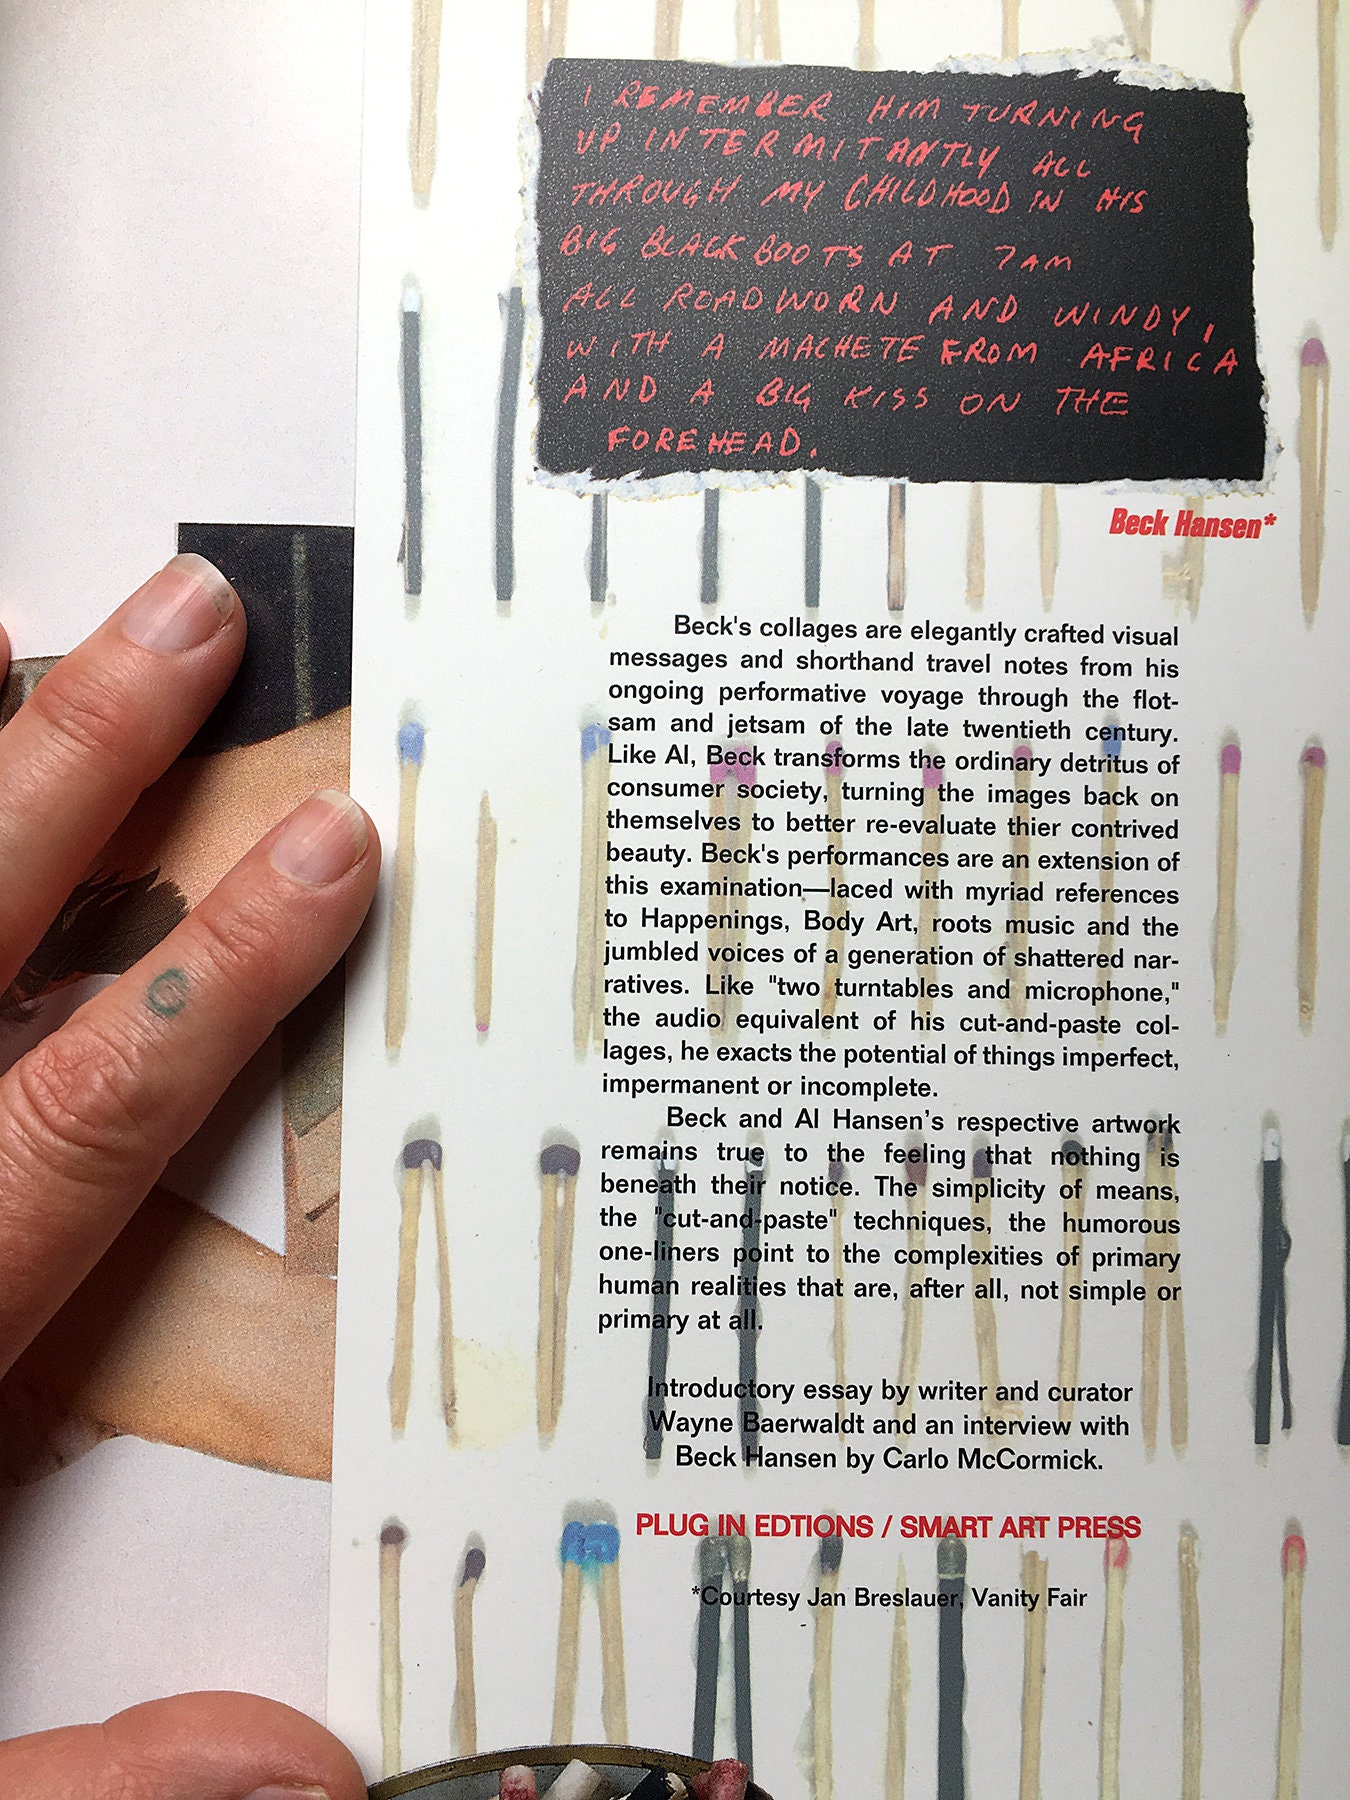 I REMEMBER HIM TURNING
UP INTERMITANTLY ALL
THROUGH MY CHILDHOOD IN HIS
BIG BLACK BOOTS AT 7AM
ALL ROADWORN AND WINDY,
WITH A MACHETE FROM AFRICA
AND A BIG KISS ON THE
FOREHEAD.
Beck Hansen*
Beck's collages are elegantly crafted visual
messages and shorthand travel notes from his
ongoing performative voyage through the flot-
sam and jetsam of the late twentieth century.
Like Al, Beck transforms the ordinary detritus of
consumer society, turning the images back on
themselves to better re-evaluate thier contrived
beauty. Beck's performances are an extension of
this examination—laced with myriad references
to Happenings, Body Art, roots music and the
jumbled voices of a generation of shattered nar-
ratives. Like "two turntables and microphone,"
the audio equivalent of his cut-and-paste col-
lages, he exacts the potential of things imperfect,
impermanent or incomplete.
Beck and Al Hansen's respective artwork
remains true to the feeling that nothing is
beneath their notice. The simplicity of means,
the "cut-and-paste" techniques, the humorous
one-liners point to the complexities of primary
human realities that are, after all, not simple or
primary at all.
Introductory essay by writer and curator
Wayne Baerwaldt and an interview with
Beck Hansen by Carlo McCormick.
PLUG IN EDTIONS / SMART ART PRESS
*Courtesy Jan Breslauer, Vanity Fair